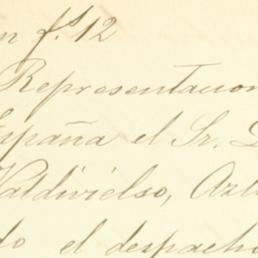 n fs. 12
Representacion
España el Sr. D
Valdivielso, Art
do el despacho